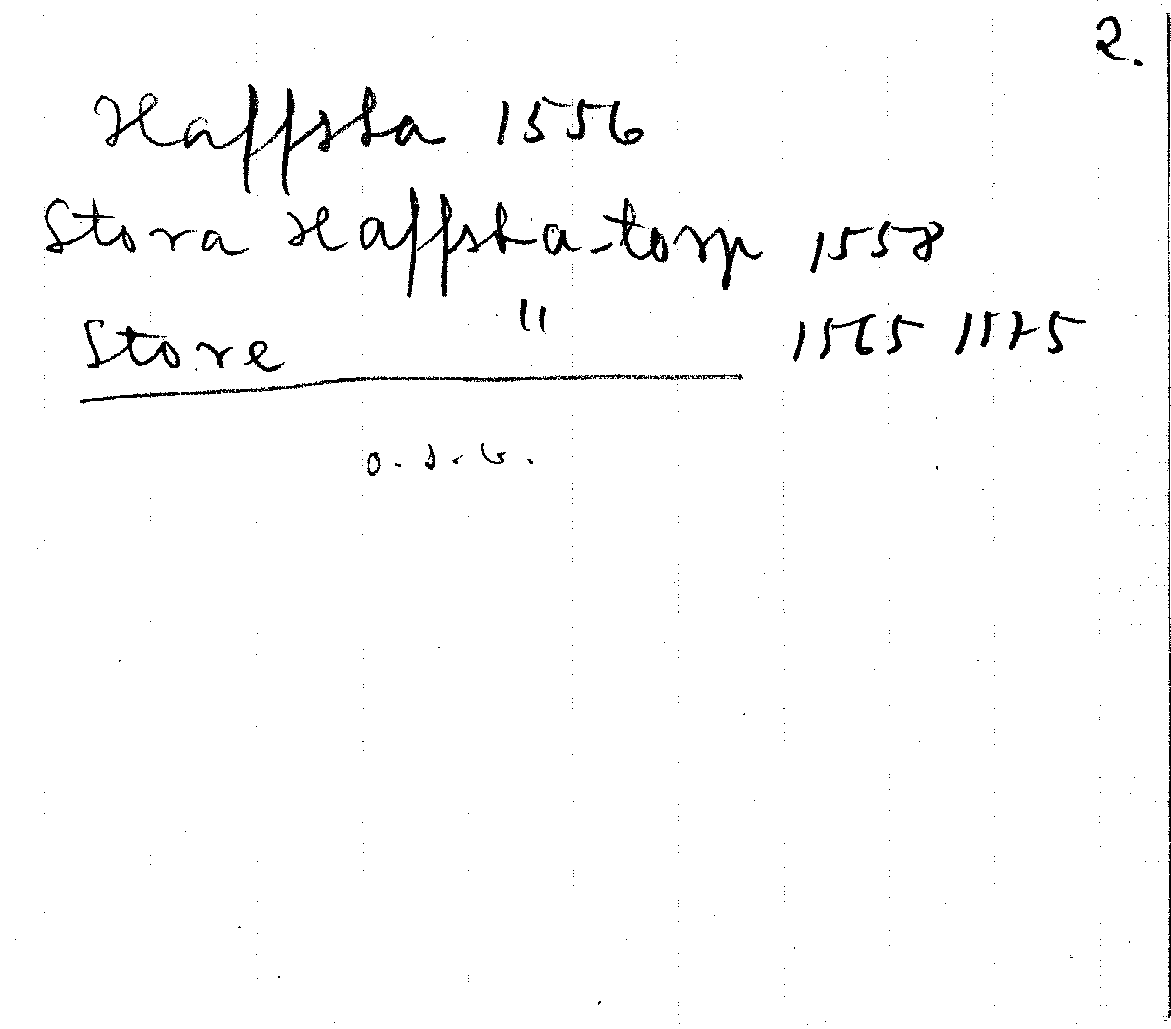 2.
Haffsta 1556
Stora Haffsta-torp 1558
Store " 1565 1575
o.s.v.